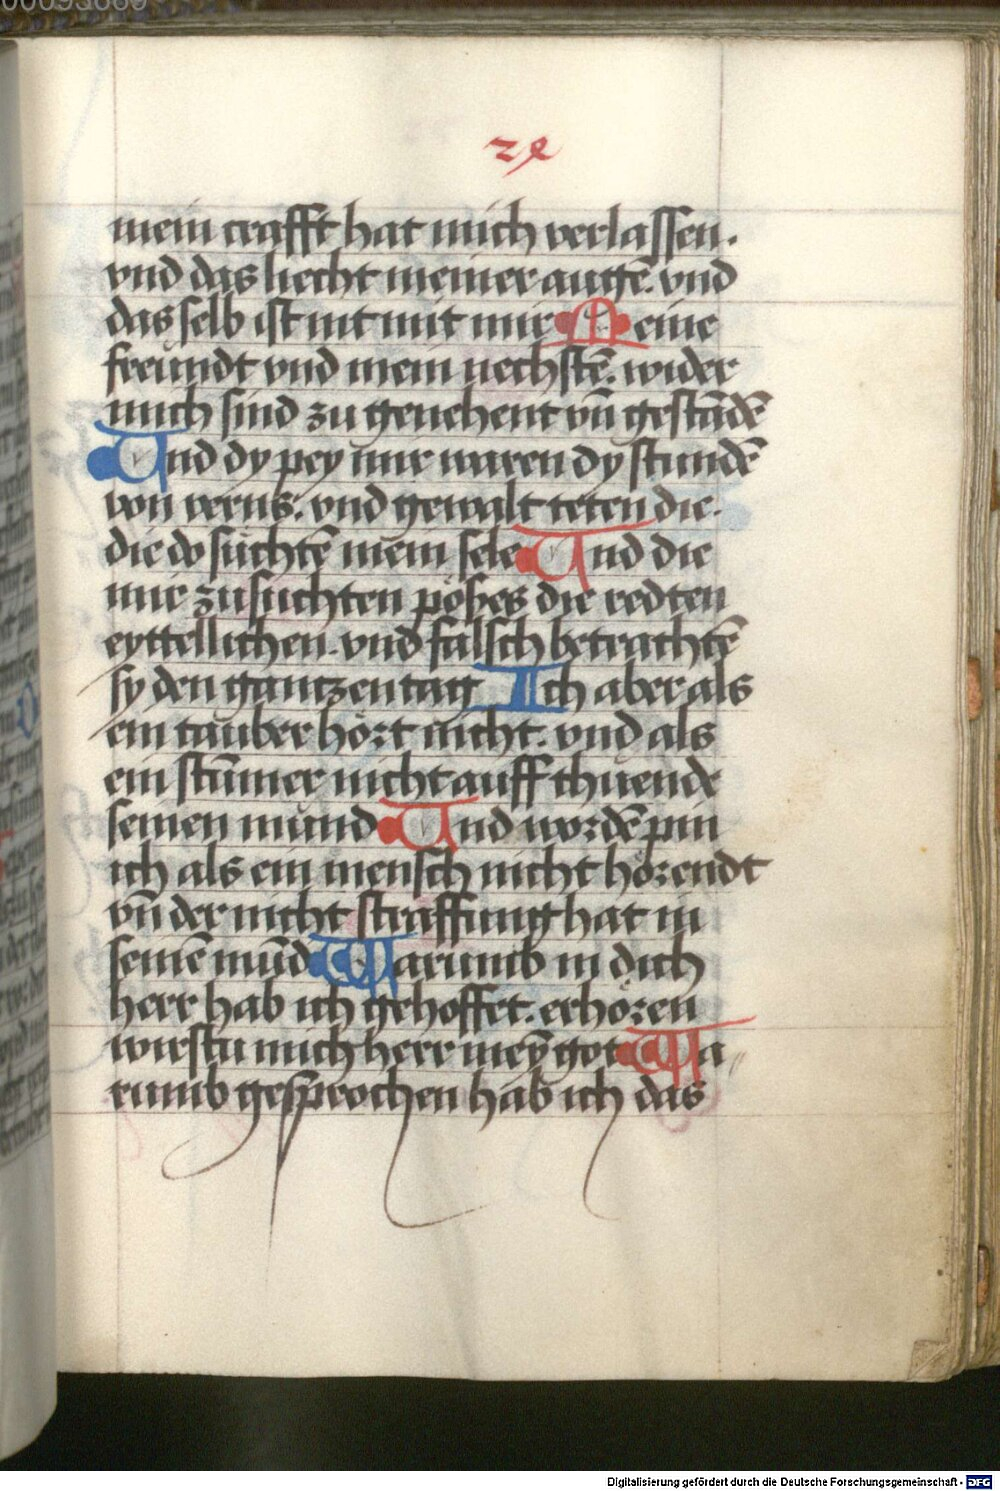 mein crafft hat mich verlassen.
vnd das liecht meiner augē. vnd
das selb ist nit mit mir Meine
freůndt vnd mein nechstē. wider
mich sind zu genehent vn̄ gestādē
Vnd dy pey mir waren dy stundē
von verns: vnd gewalt teten die.
die do sůchtē mein sele Vnd die
mir zusuchten pöses die redten
eyttellichen. vnd falsch betrachtē
sy den gantzen tag Ich aber als
ein tauber hört nicht. vnd als
ein stūmer nicht auff thuende
seinen mund Vnd wordē pin
ich als ein mensch nicht hörendt
vn̄ der nicht straffung hat in
seinē mūd Warumb in dich
herr hab ich gehoffet. erhören
wirstu mich herr meȳ got Wa„
rumb gesprochen hab ich das
Digitalisierung gefördert durch die Deutsche Forschungsgemeinschaft - DFG